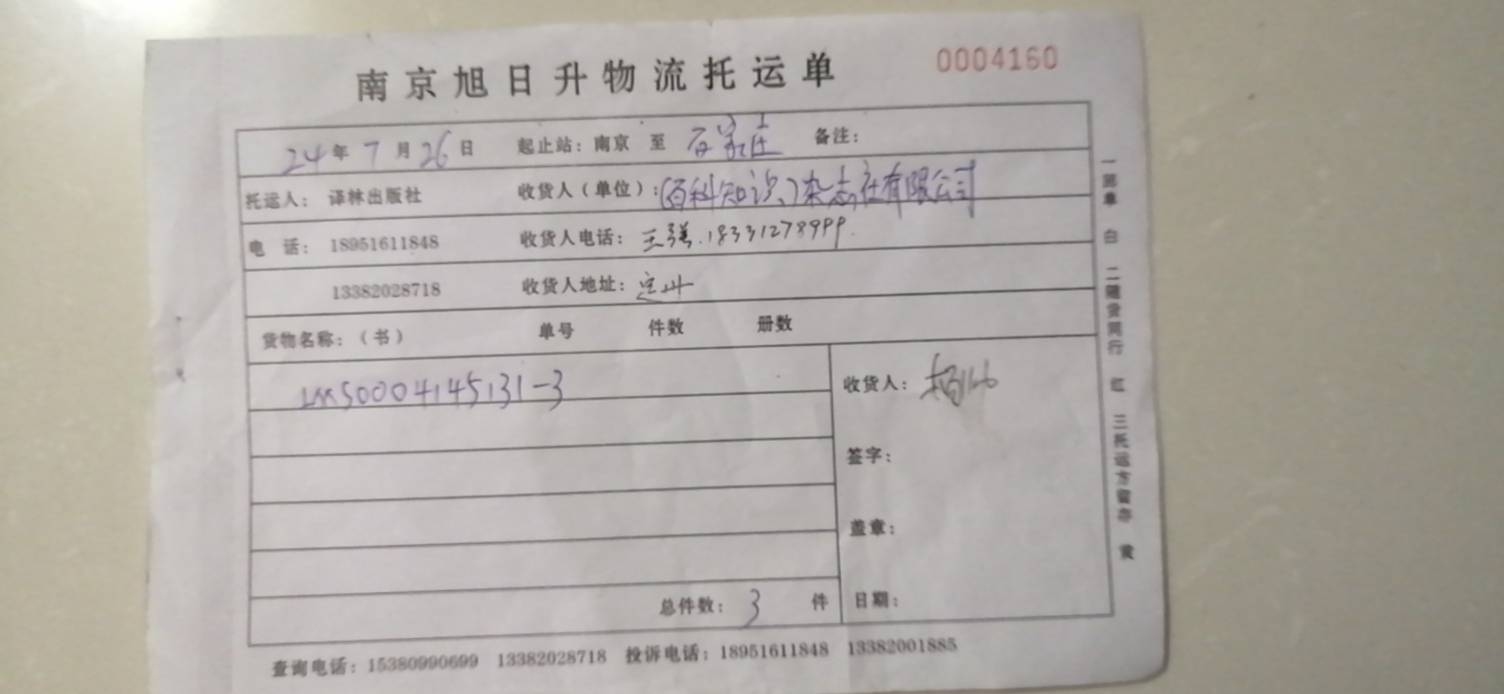 南京旭日升物流托运单 0004160
24年7月26日 起止站：南京 至 石家庄 备注：
托运人： 译林出版社 收货人（单位）：《百科知识》杂志社有限公司
电 话： 18951611848 收货人电话： 王强.18331278999.
13382028718 收货人地址： 定州
货物名称：（书） 单号 件数 册数
LMS0004145131-3
收货人：
签字：
盖章：
总件数： 3 件 日期：
查询电话：15380990699 13382028718 投诉电话：18951611848 13382001885
一回单 白 二随货同行 红 三托运方留存 黄